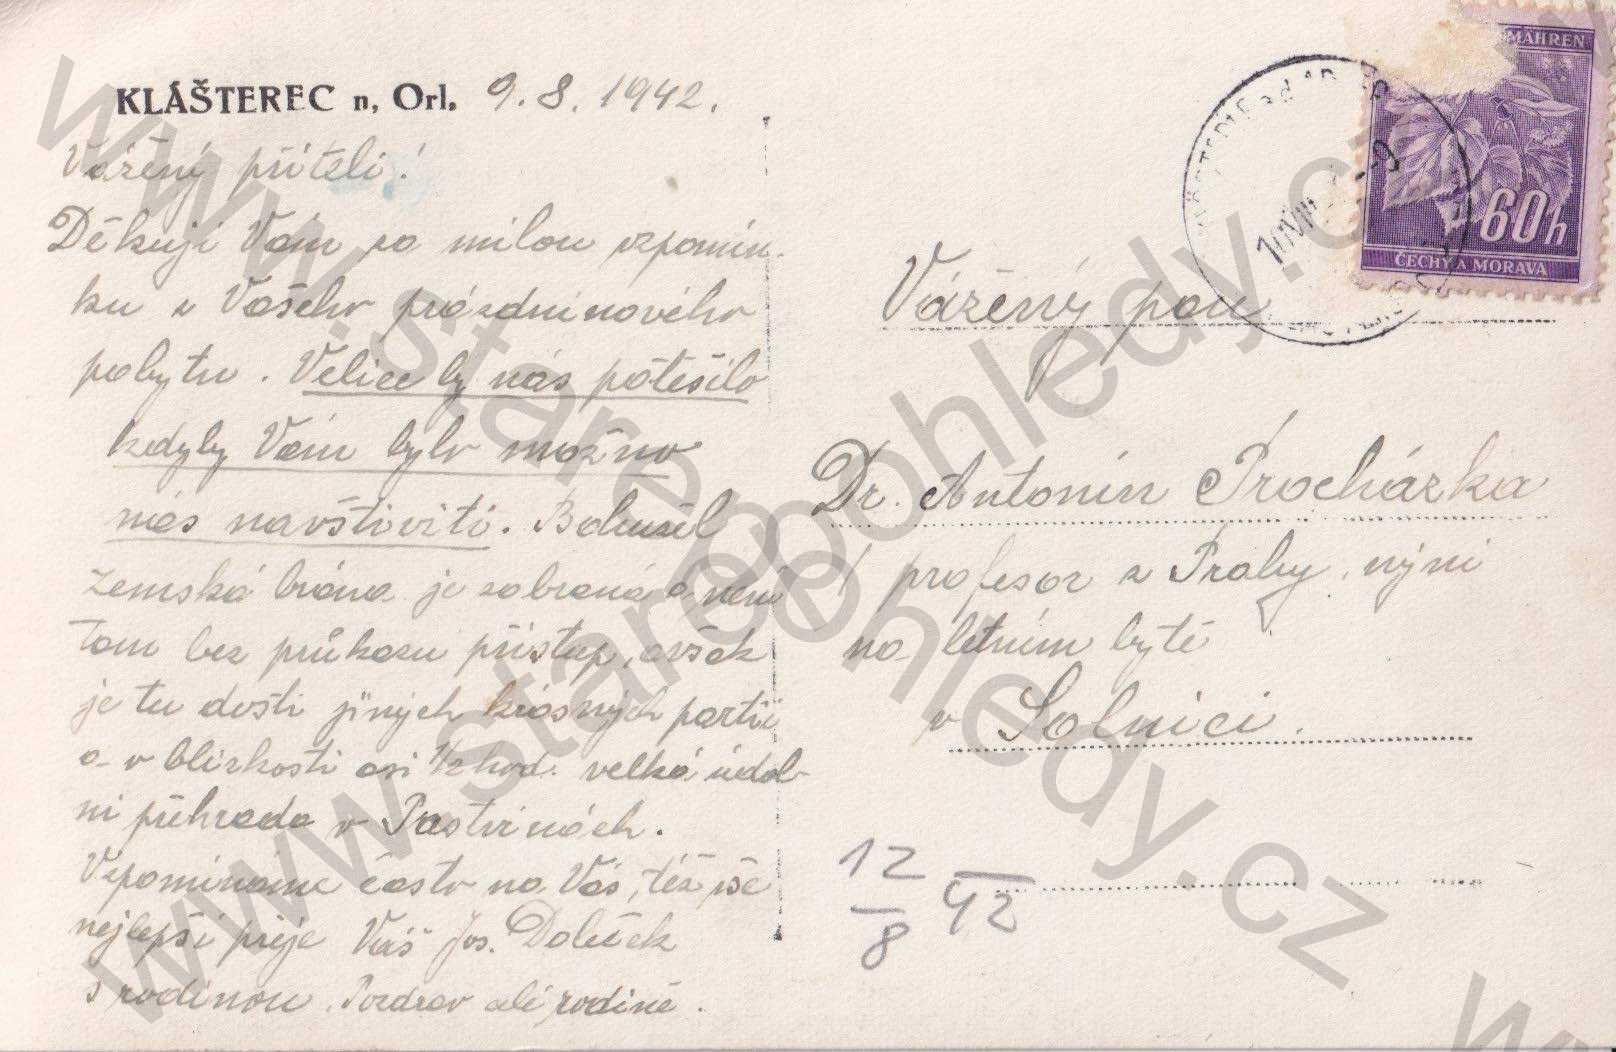 KLÁŠTEREC n, Orl. 9.8.1942.
Vážený příteli!
Děkuji Vám za milou vzpomín-
ku z Vašeho prázdninového
pobytu. Velice by nás potěšilo
kdyby Vám bylo možno
nás navštíviti. Bohužel
zemská brána je zabraná a není
tam bez průkazu přístup, avšak
je tu dosti jiných krásných partií
a v blízkosti asi 1/2 hod. velká údol-
ní přehrada v Pastvinách.
Vzpomínáme často na Vás, též vše
nejlepší přeje Váš Jos. Doleček
s rodinou. Pozdrav celé rodině.
MÄHREN
60h
ČECHY A MORAVA
Vážený pan
Dr. Antonín Procházka
profesor z Prahy, nyní
na letním bytě
v Solnici.
12/8 42
www.stare pohledy.cz
www.stare pohledy.cz